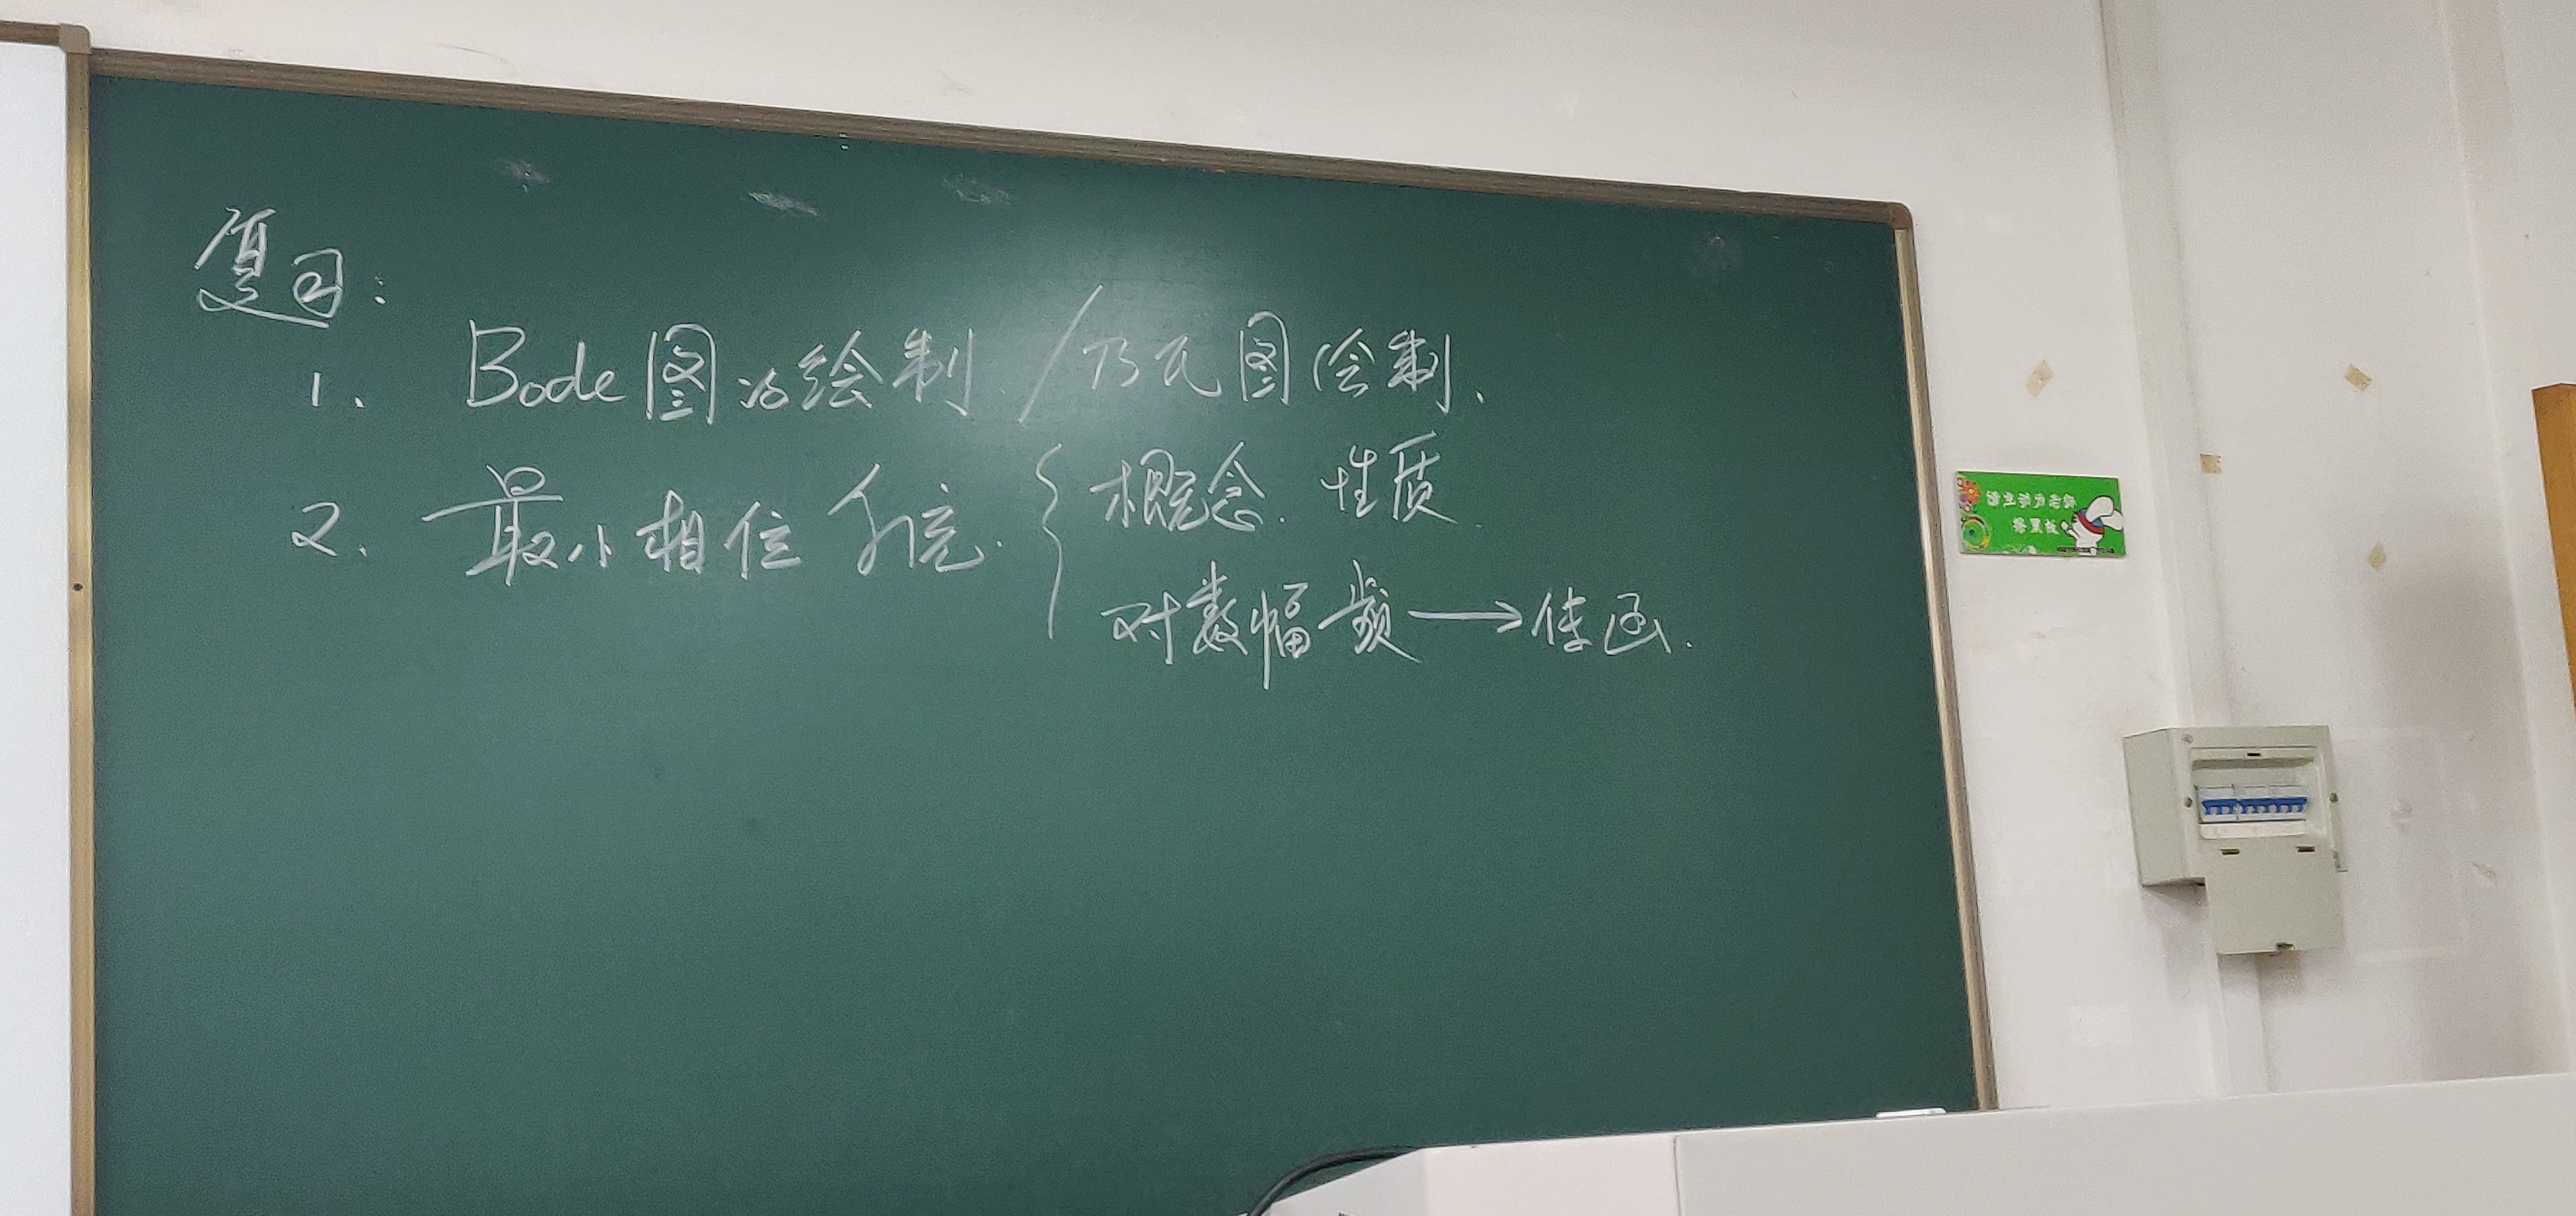 复习:
1. Bode图的绘制 / 乃氏图绘制.
2. 最小相位系统. { 概念. 性质.
对数幅频 → 传函.
请主动为老师
擦黑板